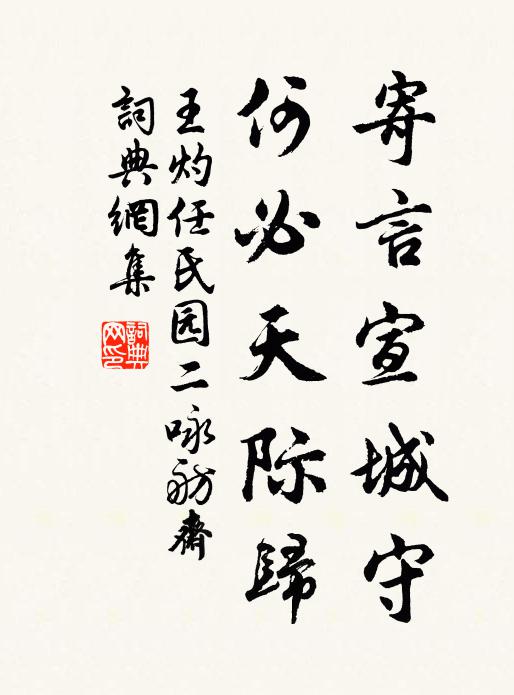 寄言宣城守
何必天际歸
王灼任氏园二咏舫齋
詞典網集
詞典网印